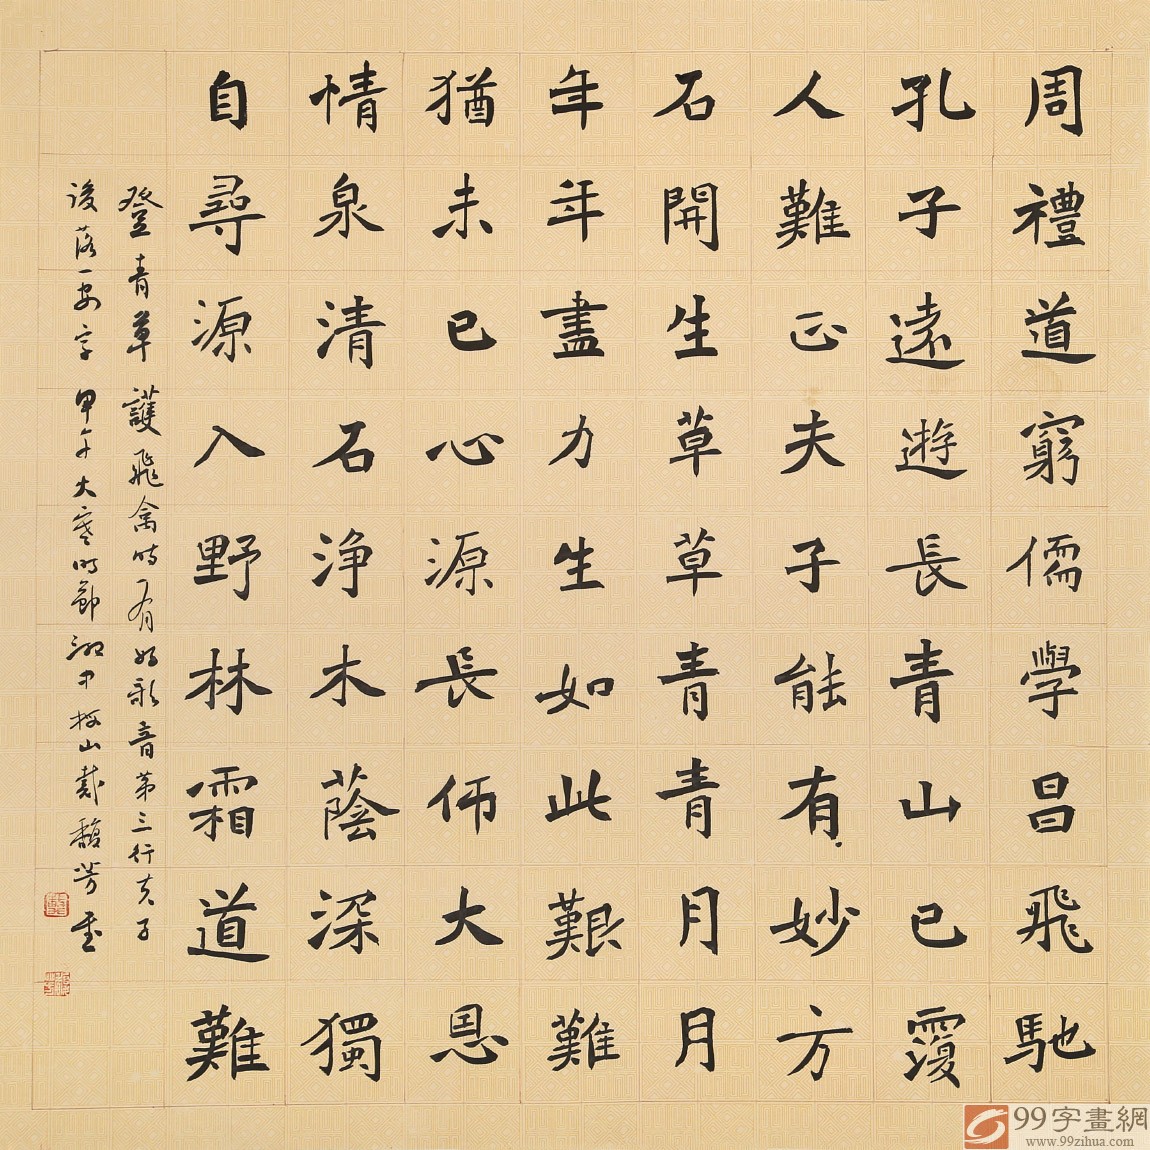 周禮道窮儒學昌飛馳
孔子遠遊長青山已覆
人難正夫子能有妙方
石開生草草青青月月
年年盡力生如此艱難
猶未已心源長師大恩
情泉清石浄木蔭深獨
自尋源入野林霜道難
登青草護飛禽時有好彩音第三行夫子
後落一安字 甲午大寒時節 山戴馥芳書
99字畫網
www.99zihua.com